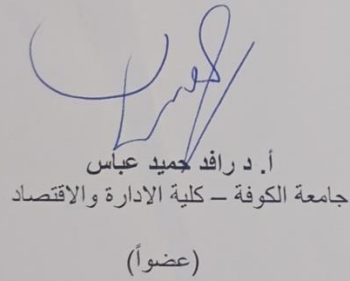 أ. د رافد حميد عباس
جامعة الكوفة – كلية الادارة والاقتصاد
(عضواً)